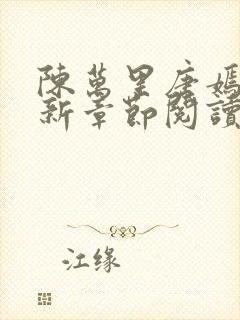 陳萬里唐嫣
新章節閱讀
江缘